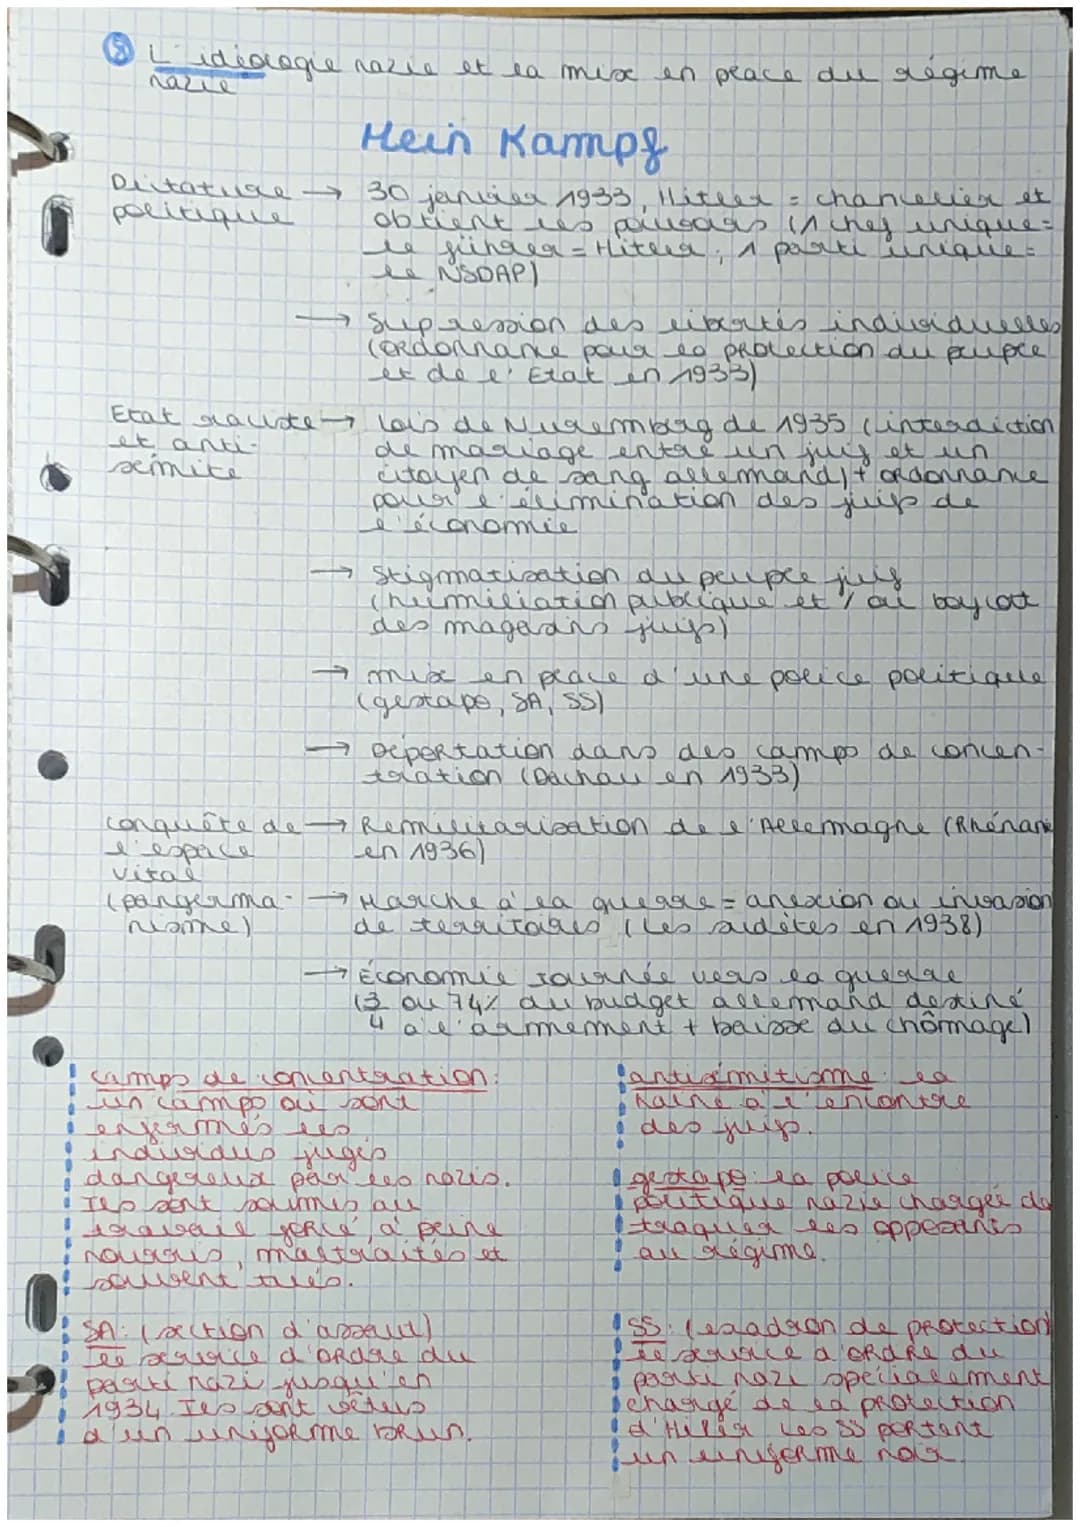 ⑤ L'idéologie nazie et la mise en place du régime
nazie
Mein Kampf
Dictature → 30 janvier 1933, Hitler = chancelier et
politique obtient les pouvoirs (1 chef unique=
le führer = Hitler ; 1 parti unique=
le NSDAP)
→ Supression des libertés individuelles
(ordonnance pour la protection du peuple
et de l'Etat en 1933)
Etat raciste → lois de Nuremberg de 1935 (interdiction
et anti- de mariage entre un juif et un
sémite citoyen de sang allemand) + ordonnance
pour l'élimination des juifs de
l'économie
→ Stigmatisation du peuple juif
(humiliation publique et / ou boycott
des magasins juifs)
→ mise en place d'une police politique
(gestapo, SA, SS)
→ Déportation dans des camps de concen-
tration (Dachau en 1933)
Conquête de → Remilitarisation de l'Allemagne (Rhénanie
l'espace en 1936)
vital
(pangerma- → Marche à la guerre = anexion ou invasion
nisme) de territoires (les sudètes en 1938)
→ Économie tournée vers la guerre
(3/4 ou 74% du budget allemand destiné
à l'armement + baisse du chômage)
camps de concentration:
un camps où sont
enfermés les
individus jugés
dangereux par les nazis.
Ils sont soumis au
travail forcé, à peine
nourris, maltraités et
souvent tués.
antisémitisme: la
haine à l'encontre
des juifs.
gestapo: la police
politique nazie chargée de
traquer les opposants
au régime.
SA: (section d'assaut)
le service d'ordre du
parti nazi jusqu'en
1934. Ils sont vêtus
d'un uniforme brun.
SS: (escadron de protection)
le service d'ordre du
parti nazi spécialement
chargé de la protection
d'Hitler. Les SS portent
un uniforme noir.